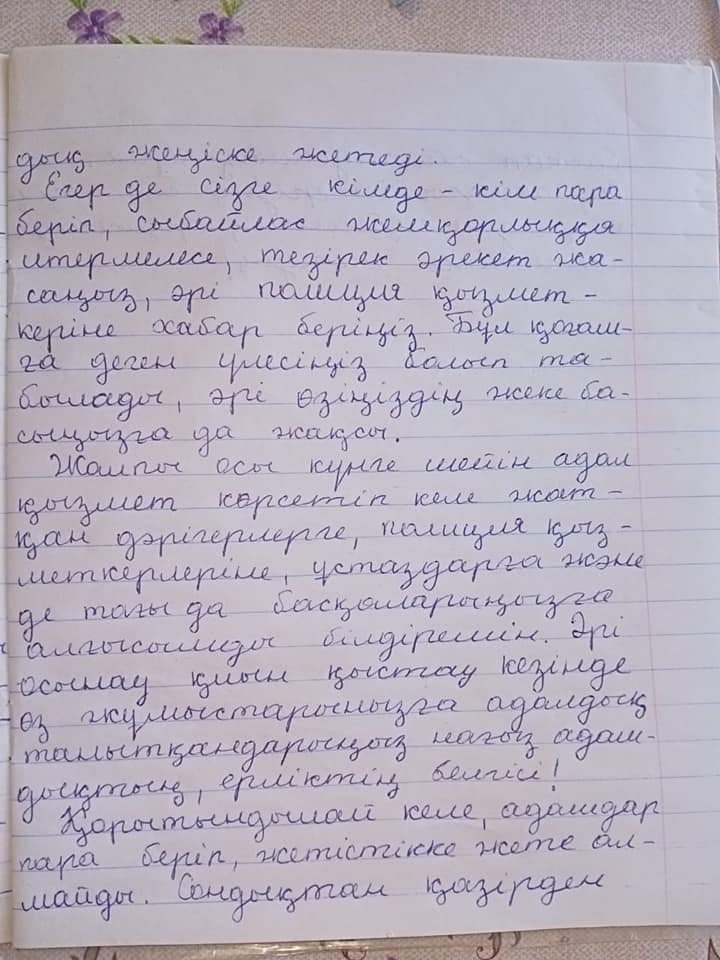 дық жеңіске жетеді.
Егер де сізге кімде - кім пара
беріп, сыбайлас жемқорлыққа
итермелесе, тезірек әрекет жа-
саңыз, әрі полиция қызмет -
керіне хабар беріңіз. Бұл қоғам-
ға деген үлесіңіз болып та-
былады, әрі өзіңіздің жеке ба-
сыңызға да жақсы.
Жалпы осы күнге шейін адал
қызмет көрсетіп келе жат -
қан дәрігерлерге, полиция қыз -
меткерлеріне, ұстаздарға және
де тағы да басқаларыңызға
алғысымды білдіремін. Әрі
осынау қиын қыстау кезінде
өз жұмыстарыңызға адалдық
танытқандарыңыз нағыз адам-
дықтың, ерліктің белгісі!
Қорытындылай келе, адамдар
пара беріп, жетістікке жете ал-
майды. Сондықтан қазірден